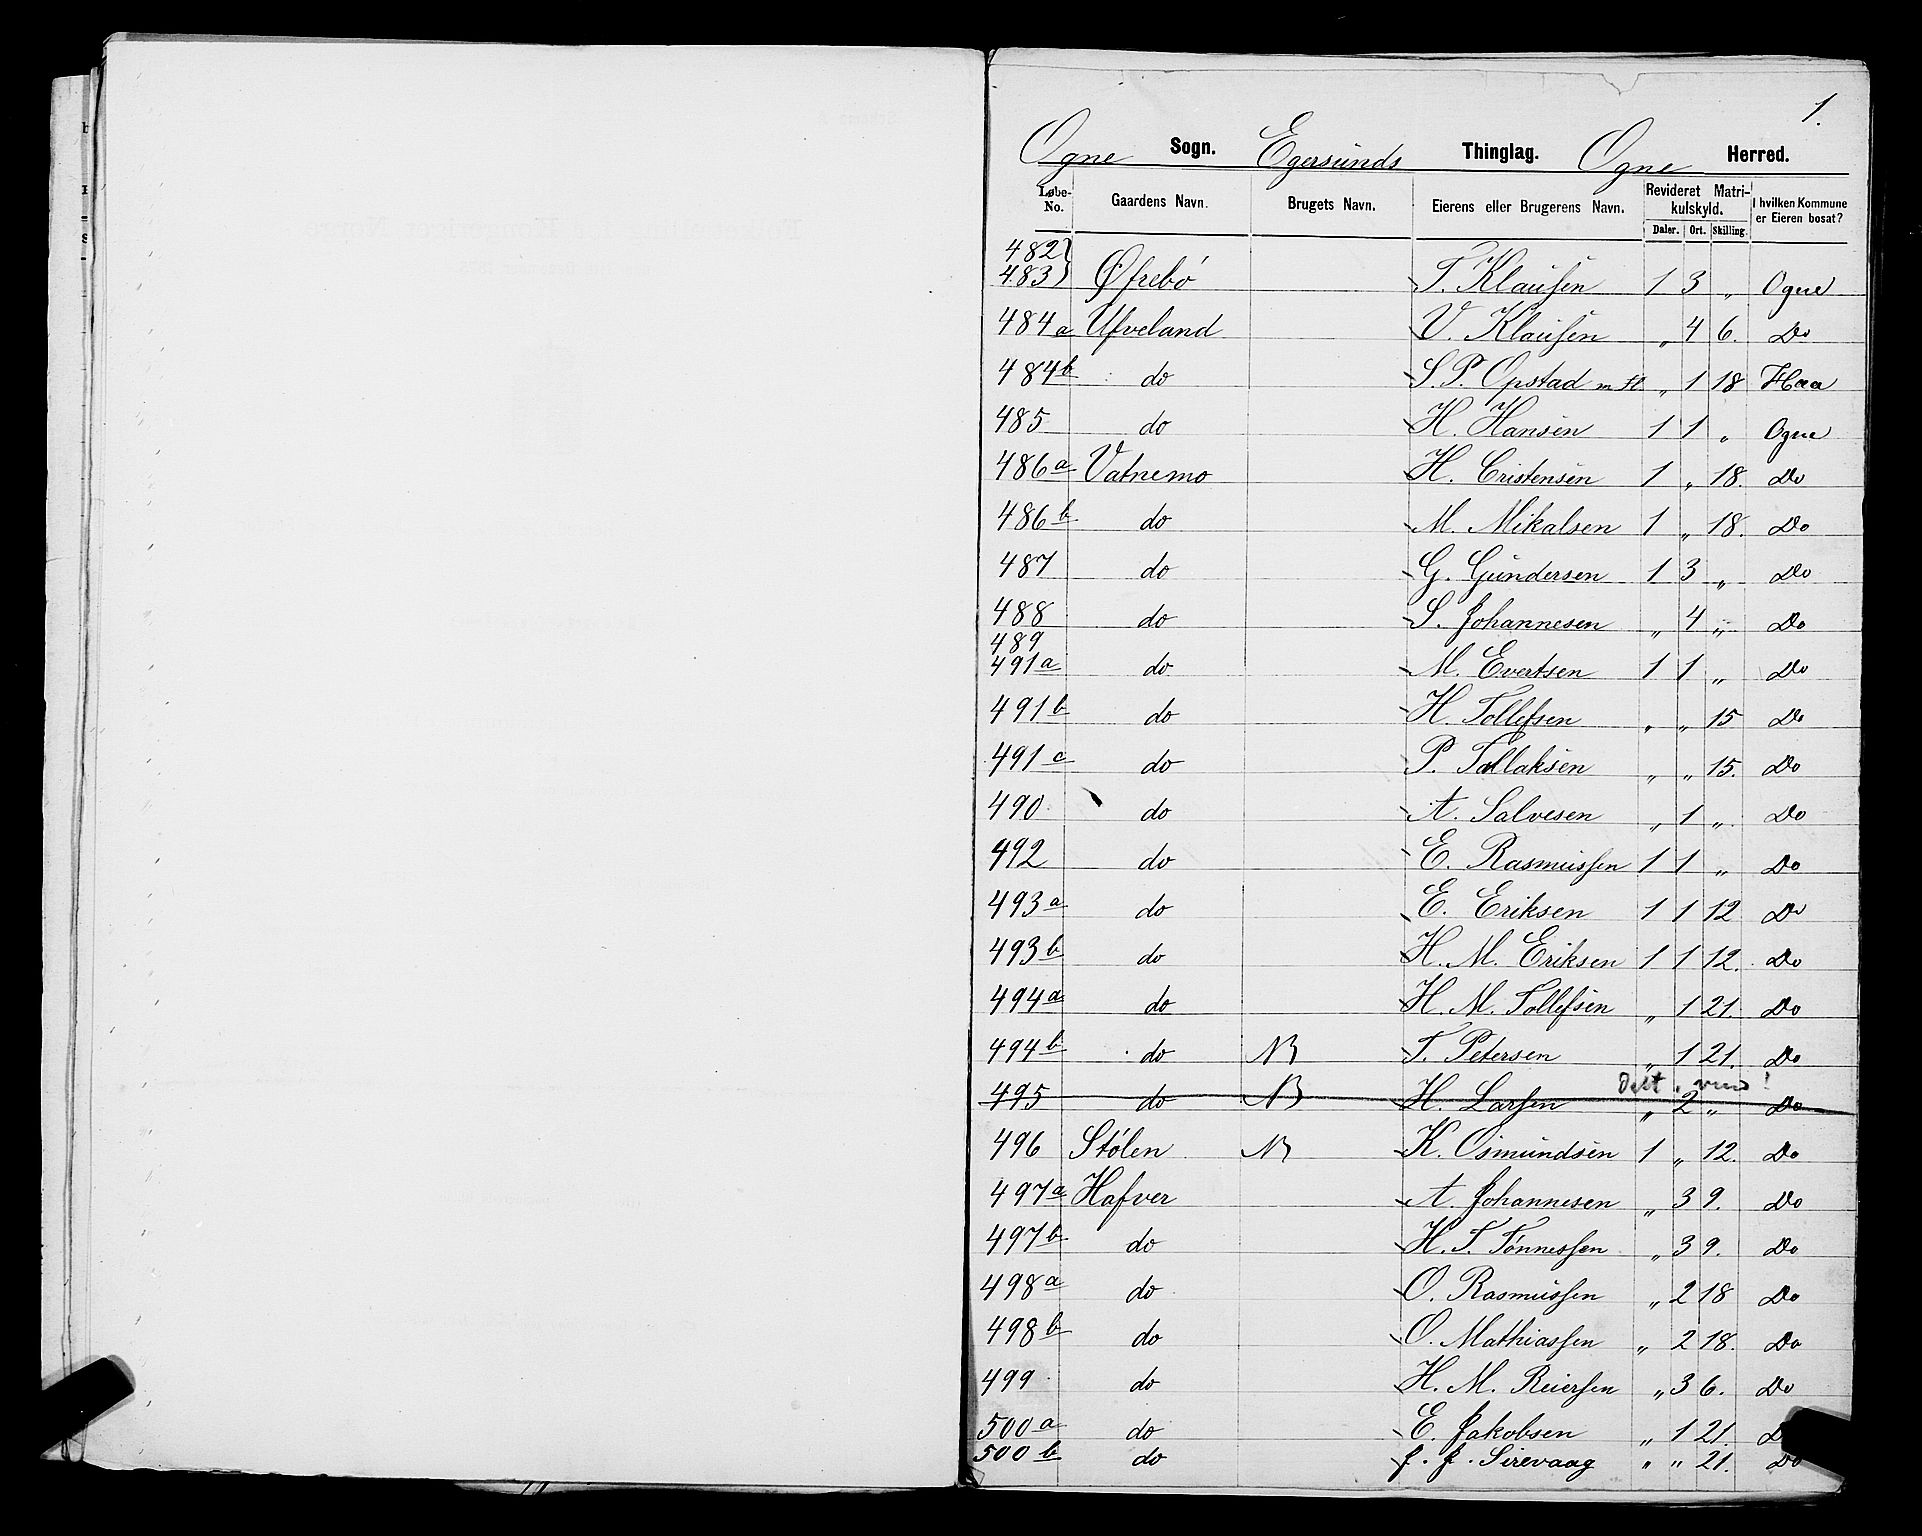 1.
Ogne Sogn. Egersunds Thinglag. Ogne Herred.
Løbe-No. Gaardens Navn. Brugets Navn. Eierens eller Brugerens Navn. Revideret Matrikulskyld. I hvilken Kommune er Eieren bosat?
Daler. Ort. Skilling.
482
483 Øfrebö T. Klausen 1 3 „ Ogne
484a Ufveland V. Klausen „ 4 6. Do
484b do S. P. Opstad m fl. „ 1 18 Haa
485 do H. Hansen 1 1 „ Ogne
486a Vatnemo H. Cristensen 1 „ 18. Do
486b do M. Mikalsen 1 „ 18. Do
487 do G. Gundersen 1 3 „ Do
488 do S. Johannesen „ 4 „ Do
489
491a do M. Evertsen 1 1 „ Do
491b do H. Tollefsen „ „ 15 Do
491c do P. Tallaksen „ „ 15. Do
490 do A. Salvesen „ 1 „ Do
492 do E. Rasmussen 1 1 „ Do
493a do E. Eriksen 1 1 12 Do
493b do H. M. Eriksen 1 1 12. Do
494a do H. M. Tollefsen „ 1 21. Do
494b do NB T. Petersen „ 1 21. Do
Delt, vend!
495 do NB H. Larsen „ 2 „ Do
496 Stølen NB K. Osmundsen 1 „ 12. Do
497a Hafver A. Johannesen „ 3 9. Do
497b do H. T. Tönnessen „ 3 9. Do
498a do O. Rasmussen „ 2 18 Do
498b do O. Mathiassen „ 2 18. Do
499 do H. M. Reiersen „ 3 6. Do
500a do E. Jakobsen „ 1 21. D
500b do J. J. Sirevaag „ „ 21. Do